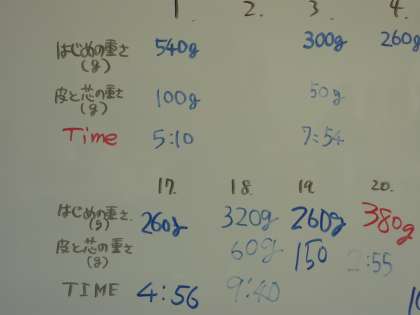 1. 2. 3. 4.
はじめの重さ(g) 540g 300g 260g
皮と芯の重さ(g) 100g 50g
Time 5:10 7:54
17. 18. 19. 20.
はじめの重さ(g) 260g 320g 260g 380g
皮と芯の重さ(g) 60g 150 2:55
TIME 4:56 9:40